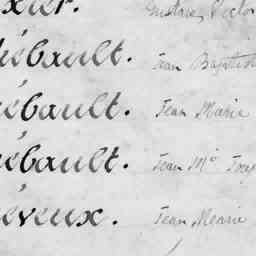 xier. Gustave Victor
hiébault. Jean Baptiste
iébault. Jean Marie
iébault. Jean Mie
éveux. Jean Marie